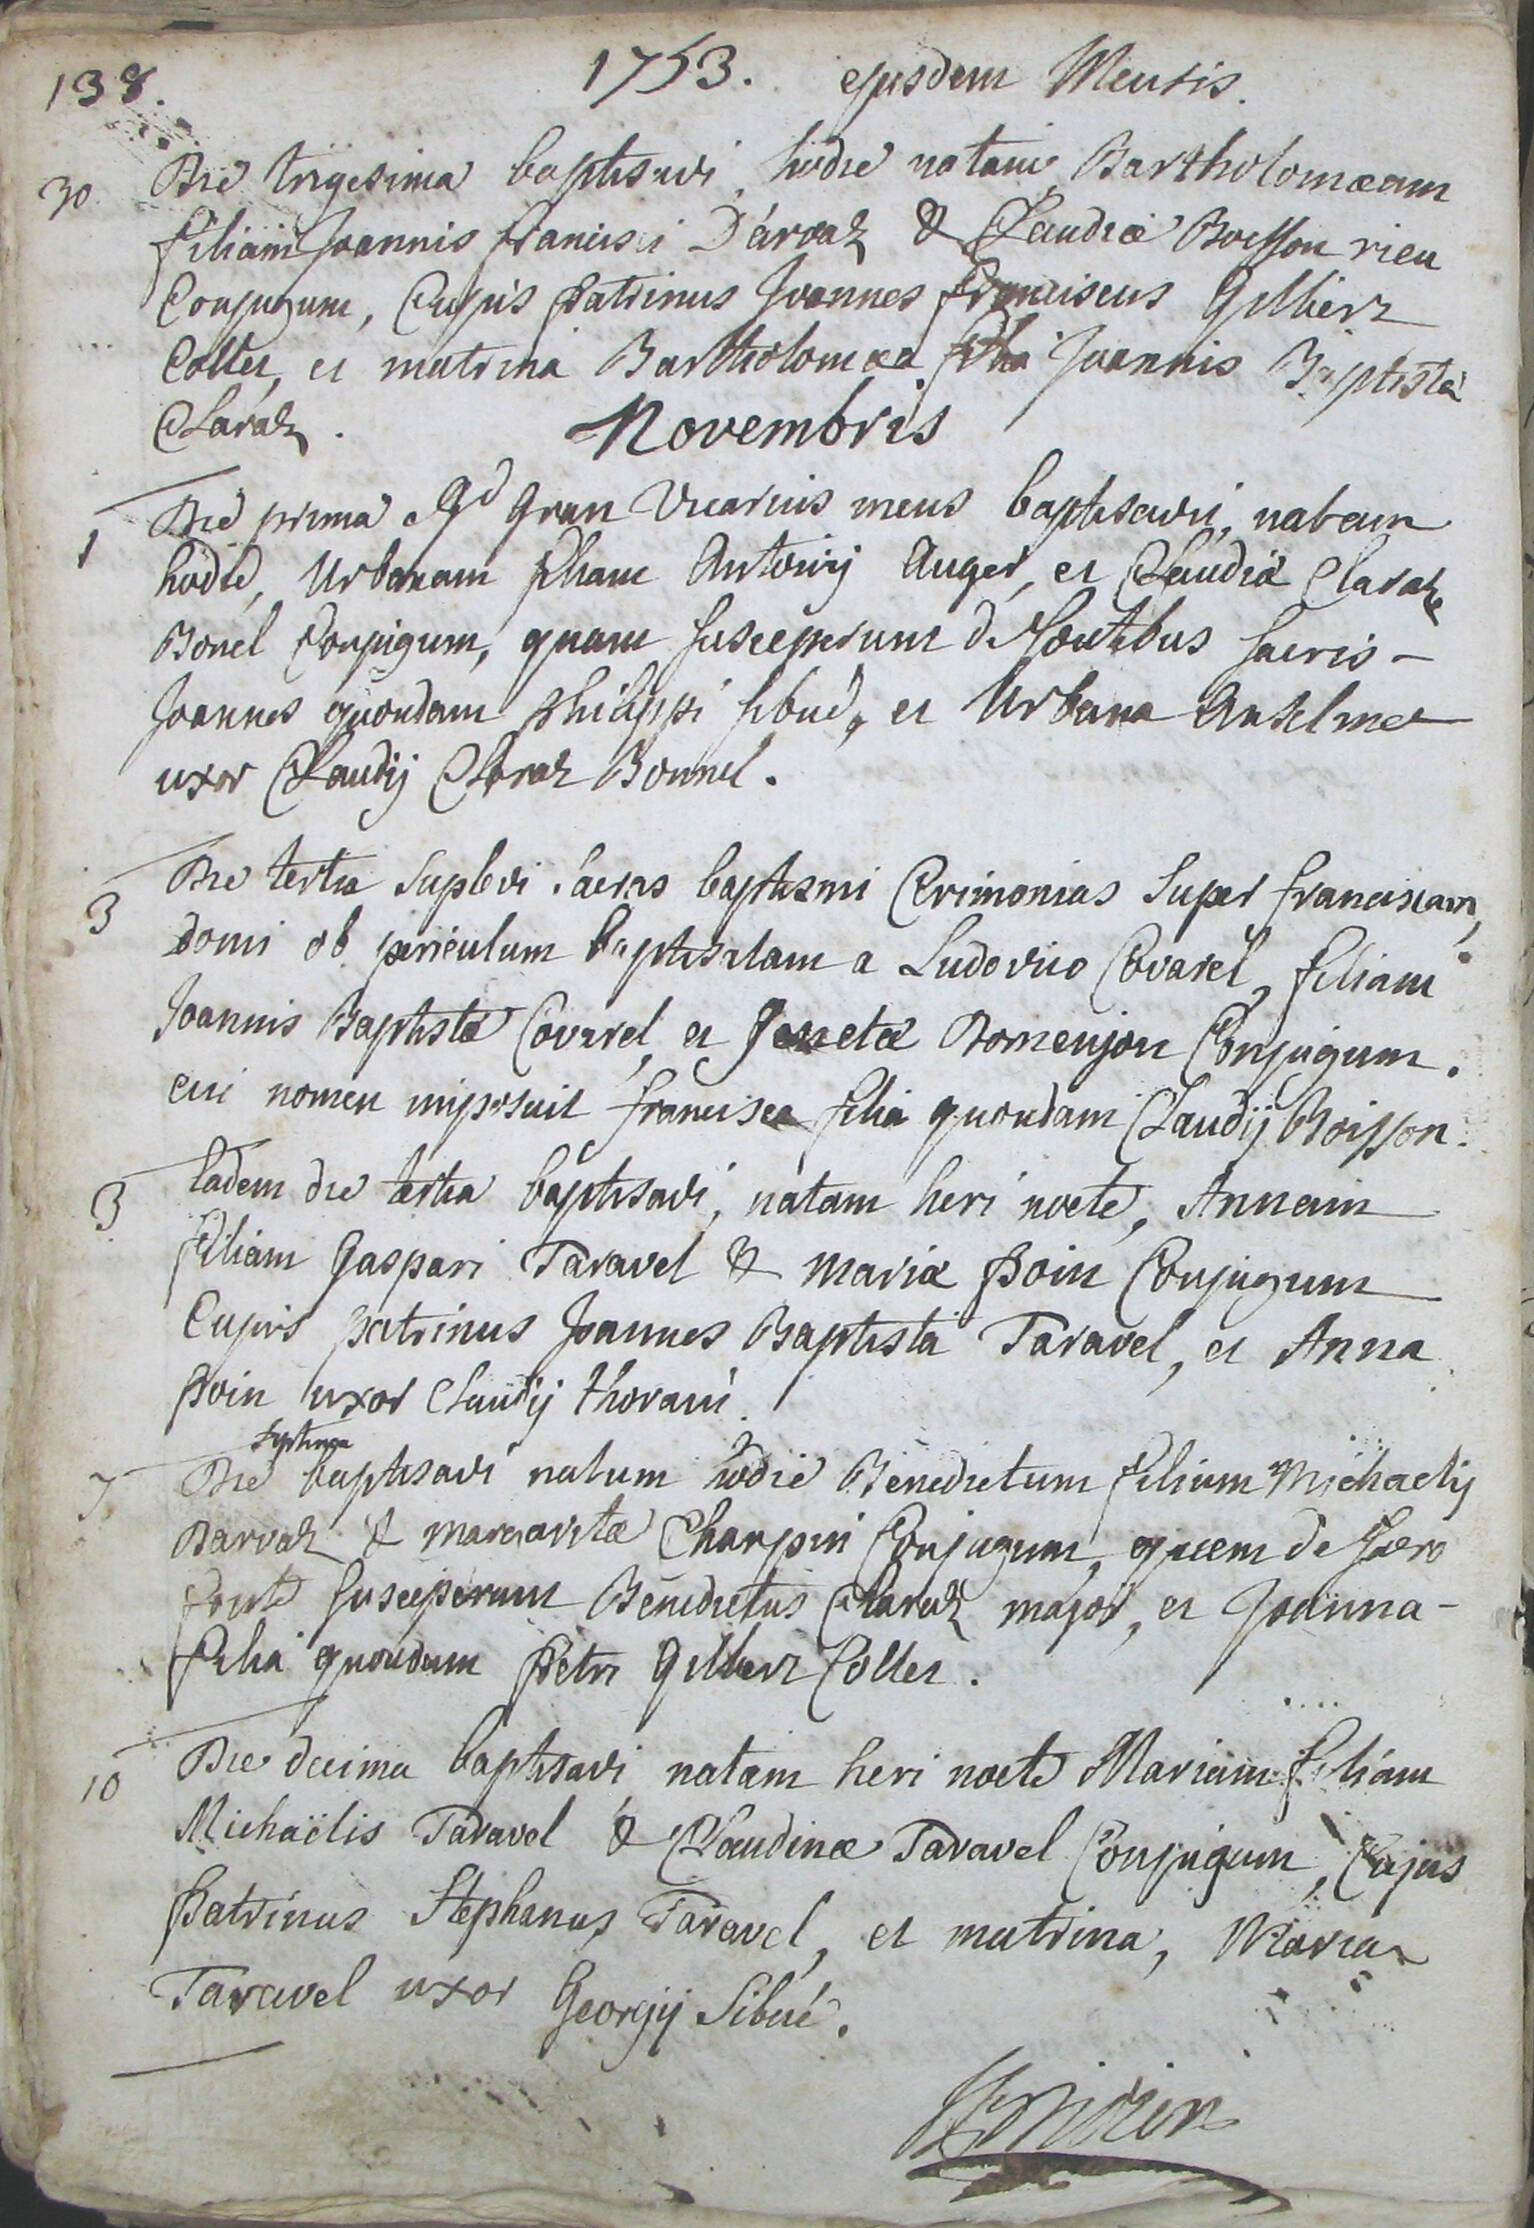 138. 1753. ejusdem Mensis.
30 Die trigesima baptisavi, hodie natam, Bartholomæam
filiam Joannis francisci D'árvaz & Claudiæ Boisson rieu
Conjugum, Cujus Patrinus Joannes franciscus Gilbert
Collet, et matrina Bartholomæa filia Joannis Baptistæ
Claraz.
Novembris
1 Die prima Gran Vicarius meus baptisavi, natam
hodie, Urbanam filiam Antonij Auger, et Claudiæ Claraz
Bonel Conjugum, quam susceperunt de fontibus sacris -
Joannes quondam philippi sibué, et Urbana Anselmet
uxor Claudij Claraz Bonnel.
3 Die tertia suplevi sacras baptismi Cerimonias super franciscam,
domi ob periculum baptisatam a Ludovico Covarel, filiam
Joannis Baptistæ Covarel, et Jenetæ Domenjon Conjugum.
cui nomen imposuit francisca filia quondam Claudij Boisson.
3 Eadem die tertia baptisavi, natam heri nocte, Annam
filiam Gaspari Taravel & mariæ Boin Conjugum
Cujus patrinus Joannes Baptista Taravel, et Anna
Boin uxor Claudij thorain.
septima
7 Die baptisavi natum hodie Benedictum filium Michaelis
Darvaz & margaritæ Charpin Conjugum, quem de sacro
fonte susceperunt Benedictus Claraz major, et Joanna -
filia quondam Petri Gilbert Collet.
10 Die decima baptisavi natam heri nocte Mariam filiam
Michaëlis Taravel & Claudinæ Taravel Conjugum, Cujus
Patrinus Stephanus Taravel, et matrina, Maria
Taravel uxor Georgij Sibué.